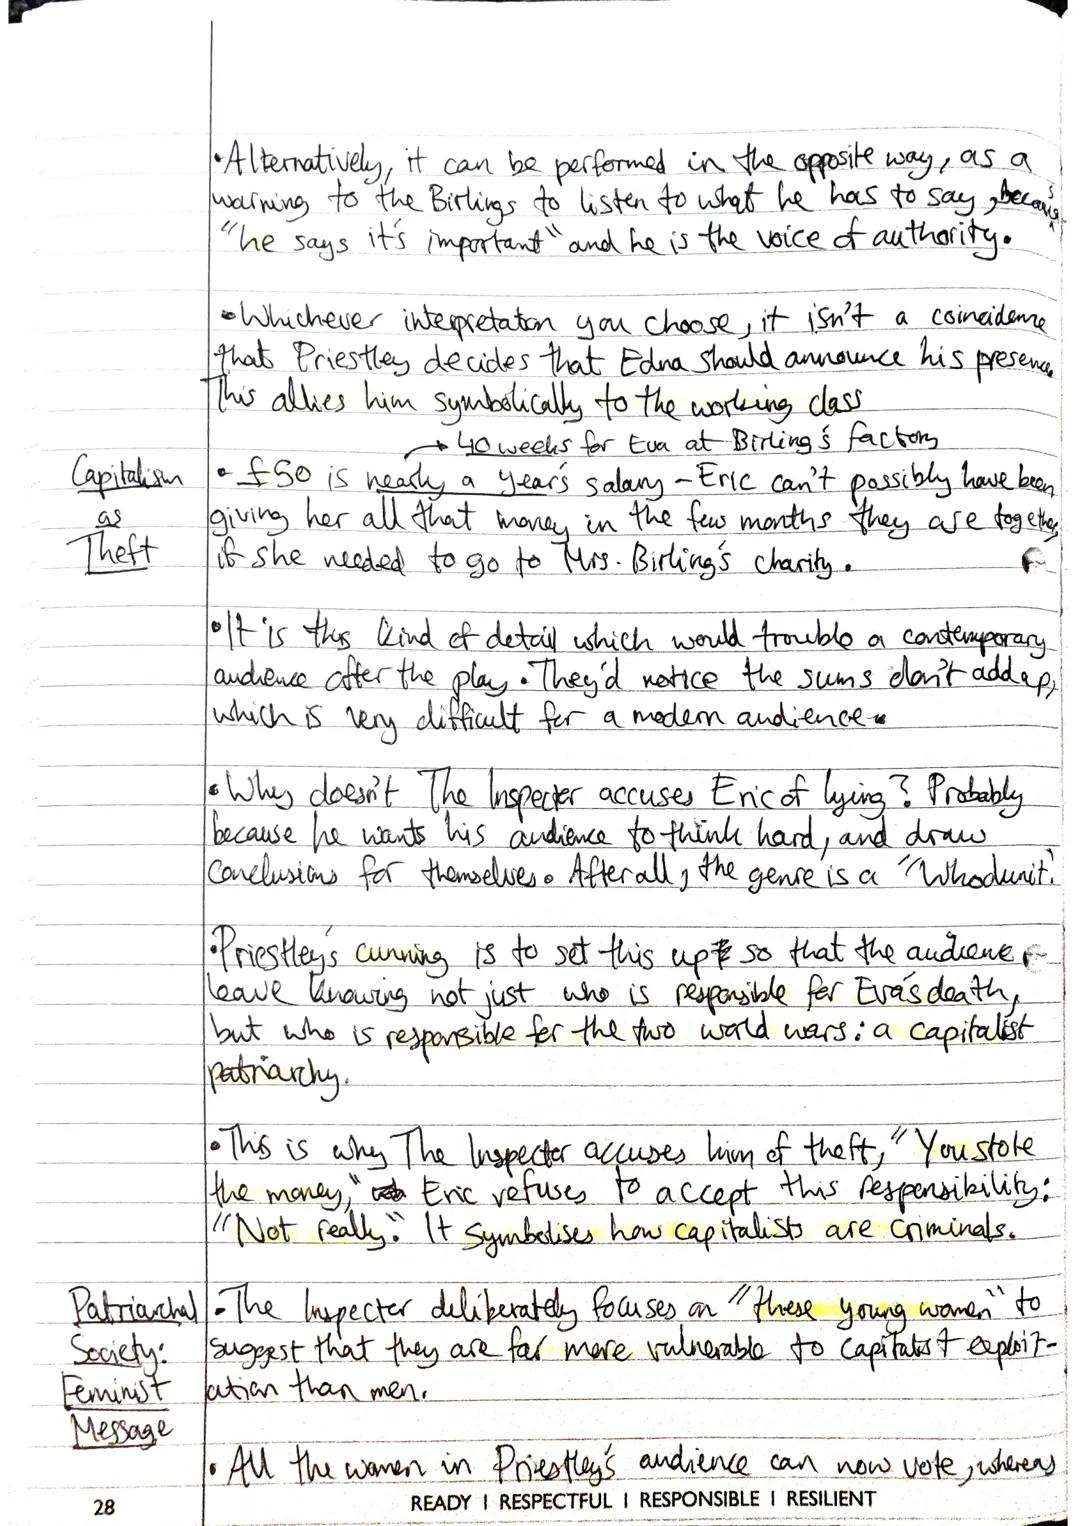 •Alternatively, it can be performed in the opposite way, as a
warning to the Birlings to listen to what he has to say, because
"he says it's important" and he is the voice of authority.
•Whichever interpretation you choose, it isn't a coincidence
that Priestley decides that Edna should announce his presence
This allies him symbolically to the working class
→ 40 weeks for Eva at Birling's factory
Capitalism as Theft
• £50 is nearly a year's salary - Eric can't possibly have been
giving her all that money in the few months they are together,
if she needed to go to Mrs. Birling's charity.
•It is this kind of detail which would trouble a contemporary
audience after the play. They'd notice the sums don't add up,
which is very difficult for a modern audience.
•Why doesn't The Inspector accuses Eric of lying? Probably
because he wants his audience to think hard, and draw
conclusions for themselves. After all, the genre is a "Whodunit".
•Priestley's cunning is to set this up so that the audience
leave knowing not just who is responsible for Eva's death,
but who is responsible for the two world wars: a capitalist
patriarchy.
•This is why The Inspector accuses him of theft, "You stole
the money," Eric refuses to accept this responsibility:
"Not really." It symbolises how capitalists are criminals.
Patriarchal Society: Feminist Message
•The Inspector deliberately focuses on "these young women" to
suggest that they are far more vulnerable to capitalist exploit-
ation than men.
• All the women in Priestley's audience can now vote, whereas
28
READY | RESPECTFUL | RESPONSIBLE | RESILIENT